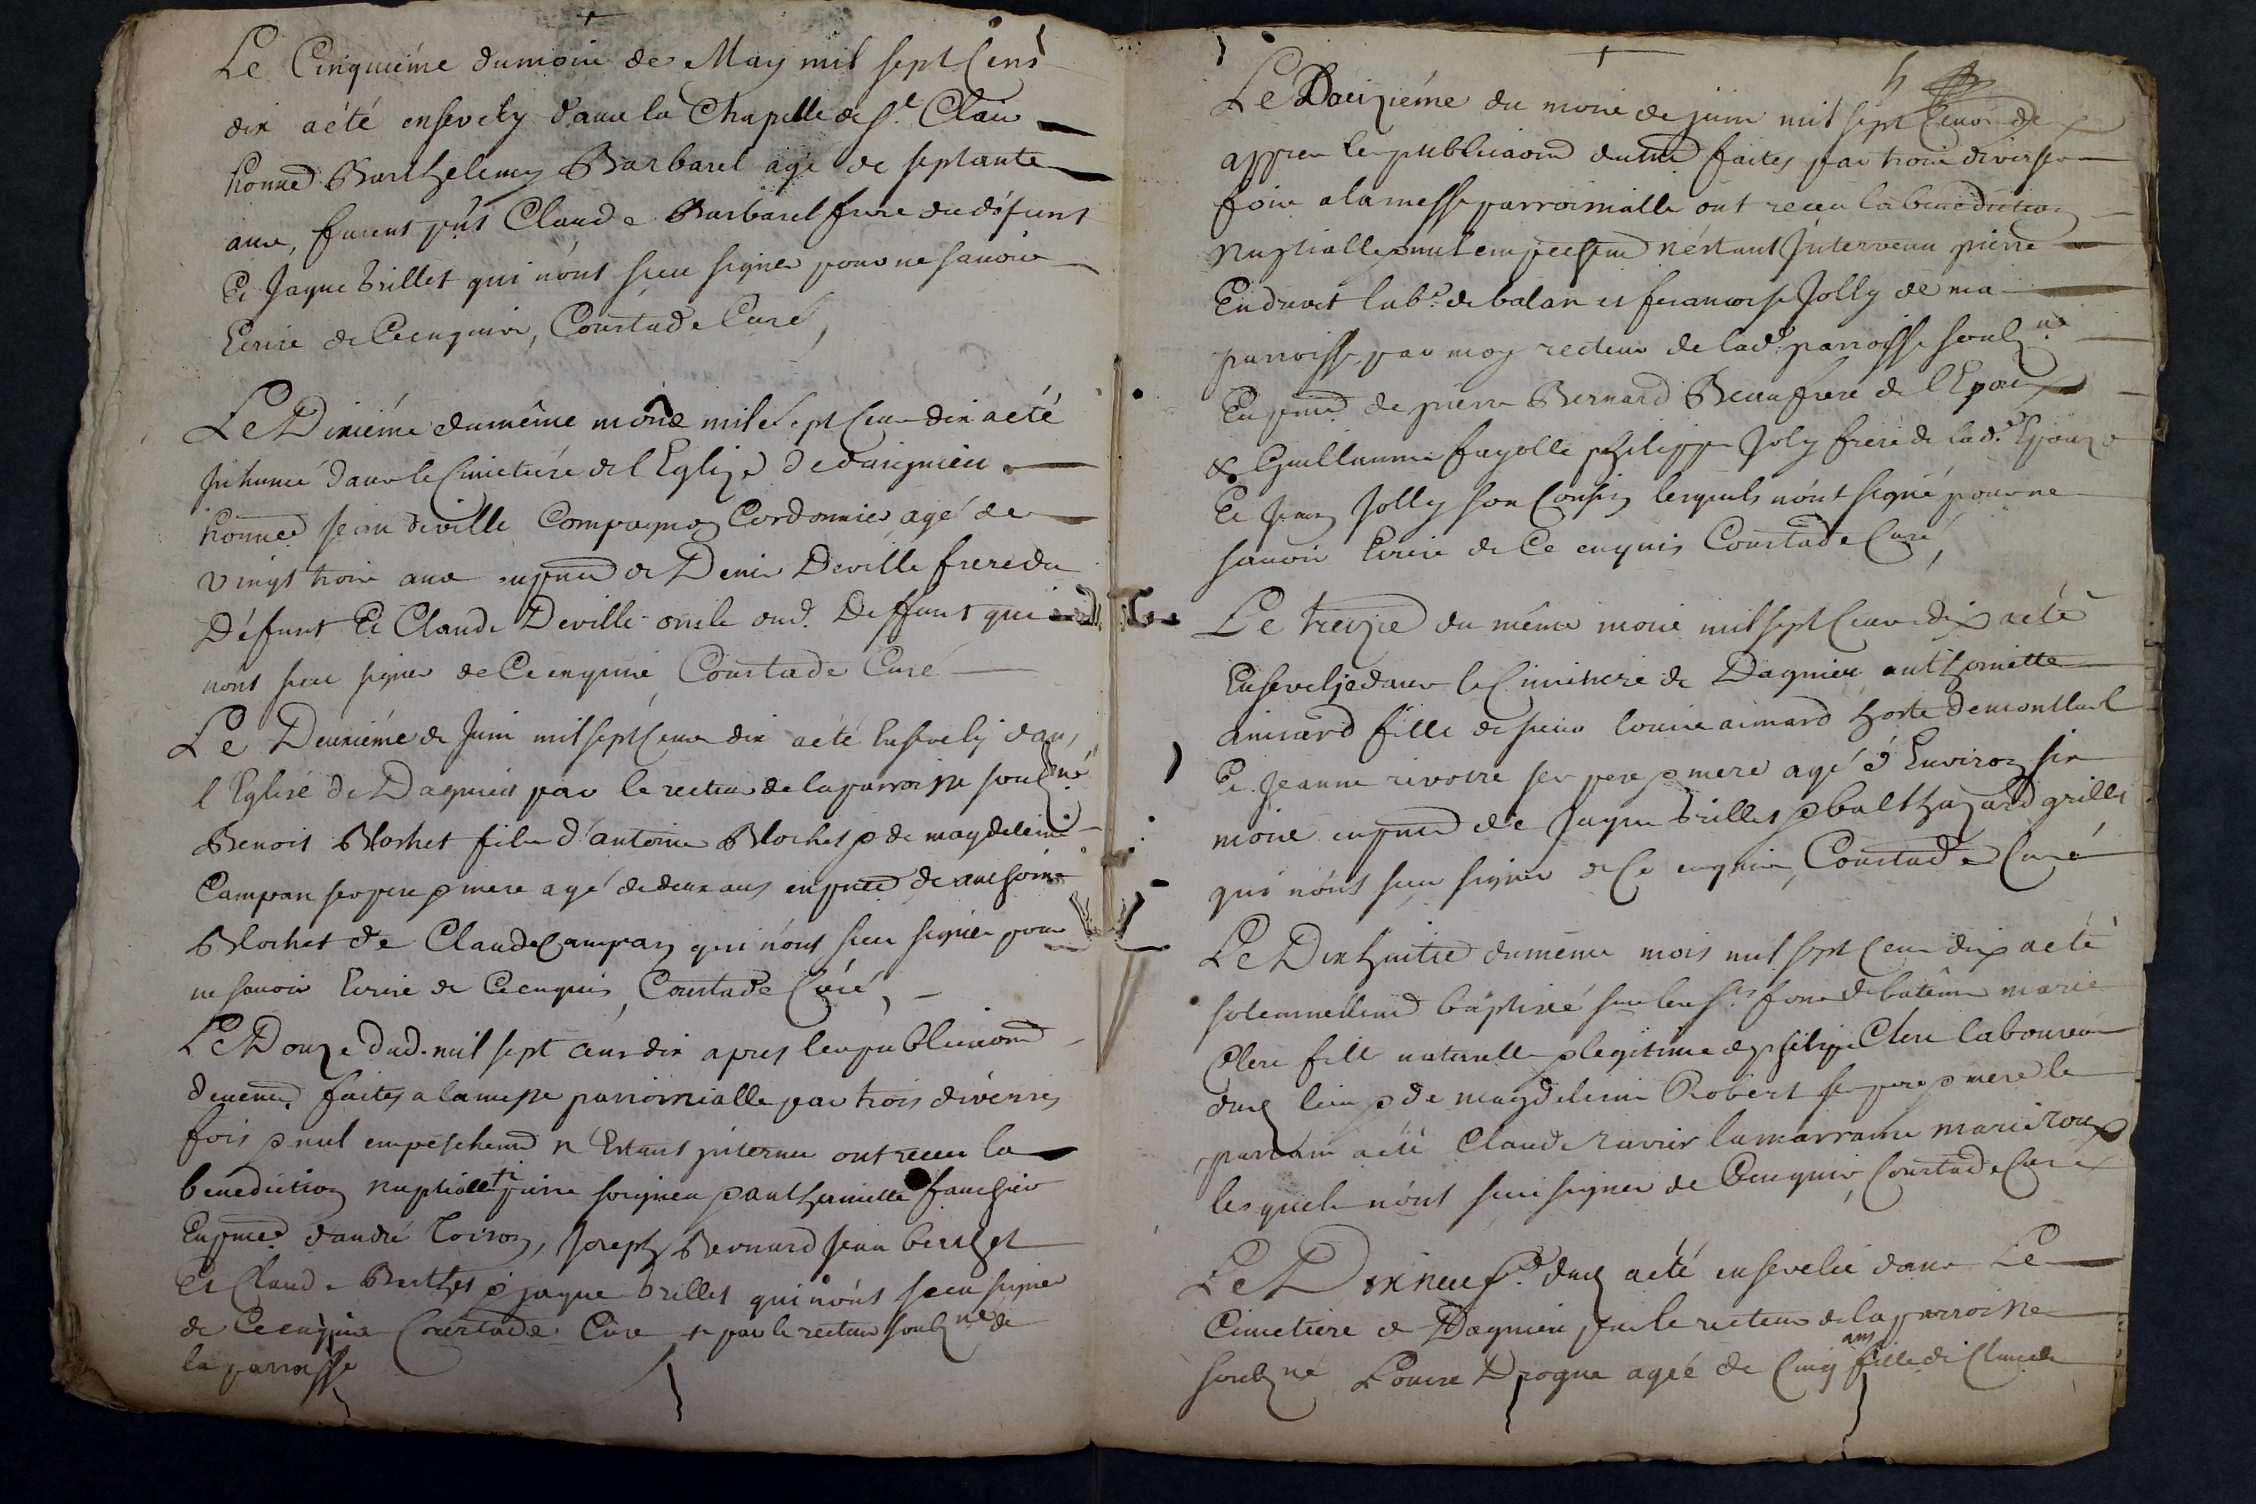 Le Cinquiéme du mois de May mil sept Cens
dix a été ensevely dans la Chapelle de St. Clair
honned Barthelemy Barbarel agé de septante
ans, furent pñts Claude Barbarel frere du défunt
Et Jaque brillet qui n'ont sceu signer pour ne savoir
Ecrire de Ce enquis, Courtade Curé,
Le Dixiéme du même mois mil sept Cens dix a été
Inhumé dans le Cimetiére de l'Eglize de daignieu
honned Jean deville Compagnon Cordonnier agé de
vingt trois ans en pnce de Denis Deville frere du
Défunt Et Claude Deville oncle dud. Deffunt qui
n'ont sceu signer de Ce enquis Courtade Curé
Le Deuxiéme de Juin mil sept Cens dix a été Ensevely dans
l'Eglise de Dagnieu par le recteur de la parroisse soubzné
Benoit Blochet fils d'antoine Blochet & de magdeleine
Campan ses pere & mere agé de deux ans en pnce de anthoine
Blochet de Claude Campan qui n'ont sceu signer pour
ne savoir Ecrire de Ce enquis, Courtade Curé,
Le Douze dud. mil sept cens dix apres les publications
deuemt. faites a la messe parroissialle par trois diverses
fois & nul empeschemt n'Estant intervenu ont receu la
benediction nuptialle pierre soignieu & anthermette fauchier
En pnce d'andré Toiron, Joseph Bernard Jean berthet
Et Claude Berthet & jaque brillet qui n'ont sceu signer
de Ce enquis Courtade Curé + par le recteur soubzné de
la parroisse
Le Douziéme du mois de juin mil sept Cens dix
appres les publications duemt faites par trois diverses
fois a la messe parroissialle ont receu la benediction
Nuptialle & nul empeschemt n'éstant Intervenu pierre
Endruet labr. de balan et francoise Jolly de ma
parroisse par moy recteur de lad. parroisse soubzné
En pnce de pierre Bernard Beaufrere de l'Epoux
& Guillaume fayolle philippe Joly frere de lad. Epouze
Et Jean Jolly son Cousin lesquels n'ont signé pour ne
savoir Ecrire de Ce enquis Courtade Curé,
Le treizie du même mois mil sept Cens dix a été
Ensevelie dans le Cimitiere de Dagnieu anthomette
aimard fille de sieur louis aimard hoste de montluel
Et Jeanne rivoire ses pere & mere agé d'Environ six
mois en pnce de Jaque brillet & balthazard grillet
qui n'ont sceu signer de Ce enquis, Courtade Curé
Le Dix huitie du même mois mil sept Cens dix a été
solemnellemt baptisée sur les Sts. fons de batême marie
Clere fille naturelle & legitime de philippe Clere laboureur
dud lieu & de magdeleine Robert ses pere & mere le
parrain a été Claude ravier la marraine marie roux
lesquels n'ont sceu signer de Ce enquis, Courtade Curé
Le Dix neufe dud a été ensevelie dans Le
Cimetiere de Dagnieu par le recteur de la parroisse
soubzné Louise Drogue agée de Cinq ans fille de Claude